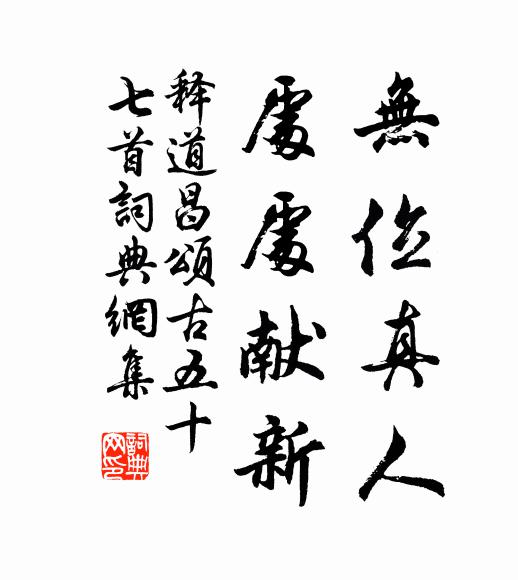 無位真人
處處献新
释道昌頌古五十
七首詞典網集
詞典網印